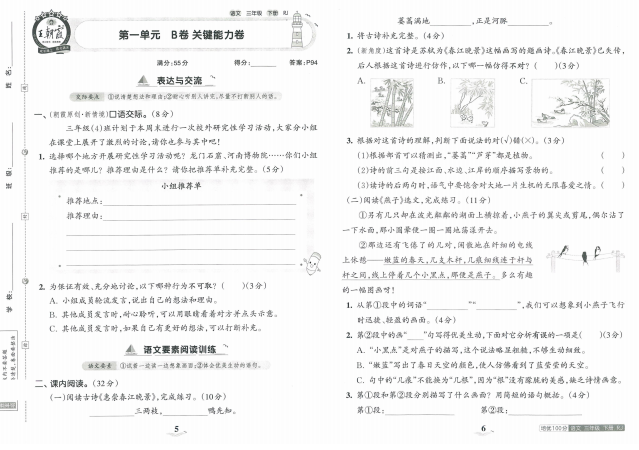 语文 三年级 下册 RJ
王朝霞
第一单元 B卷 关键能力卷
满分:55分 得分: 答案:P94
表达与交流
①说清楚想法和理由;②耐心听别人讲完,尽量不打断别人的话。
一、(朝霞原创·新情境)口语交际。(8分)
三年级(4)班计划于本周末进行一次校外研究性学习活动,大家分小组
在课堂上展开了激烈的讨论,请你也参与其中吧!
1. 选择哪个地方开展研究性学习活动呢?龙门石窟,河南博物院……你们小组
推荐的是哪儿?推荐理由是什么?请你把推荐单补充完整。(5分)
小组推荐单
推荐地点:
推荐理由:
2. 为保证有效、充分地讨论,以下哪种行为不可取?( )(3分)
A. 小组成员轮流发言,说出自己的想法和理由。
B. 其他成员发言时,耐心聆听,可以用眼睛看着对方并点头示意。
C. 其他成员发言时,如果自己有更好的想法,可以打断补充。
语文要素阅读训练
语文要素 ①试着一边读一边想象画面;②体会优美生动的语句。
二、课内阅读。(32分)
(一)阅读古诗《惠崇春江晚景》,完成练习。(10分)
三两枝, 鸭先知。
5
姓名:
班级:
学校:
蒌蒿满地 ,正是河豚 。
1. 将古诗补充完整。(4分)
2. (新角度)这首诗是苏轼为《春江晚景》这幅画写的题画诗,《春江晚景》已失传,
后人根据这首诗进行仿作,以下哪一幅仿得不对?( )(3分)
A. B. C.
3. 根据对这首诗的理解,判断下面说法的对(√)错(×)。(3分)
(1)根据部首可以猜测出,“蒌蒿”“芦芽”都是植物。 ( )
(2)诗的前三句是按江面、水边、江岸的顺序描写景物的。 ( )
(3)读诗的后两句时,语气中要饱含对大地一片生机的无限喜爱之情。( )
(二)阅读《燕子》选文,完成练习。(11分)
①另有几只却在波光粼粼的湖面上横掠着,小燕子的翼尖或剪尾,偶尔沾了
一下水面,那小圆晕便一圈一圈地荡漾开去。
②那边还有飞倦了的几对,闲散地在纤细的电线
上休憩——嫩蓝的春天,几支木杆,几痕细线连于杆与
杆之间,线上停着几个小黑点,那便是燕子。多么有趣
的一幅图画呀!
1. 从第①段中的词语“ ”“ ”,我们可以想象到小燕子飞行
时迅捷、轻盈的画面。(4分)
2. 第②段中的画“ ”句写得优美生动,下面对它分析有误的一项是( )(3分)
A. “小黑点”是对燕子的描写,这个说法略显粗糙,不够生动细致。
B. “嫩蓝”写出了春日天空的颜色,使人仿佛看到了蓝莹莹的天空。
C. 句中的“几痕”不能换为“几根”,因为“根”没有朦胧的美感,缺乏诗情画意。
3. 第①段和第②段分别描写了什么画面?用简短的语句概括。(4分)
第①段: 第②段:
6
培优100分 语文 三年级 下册 RJ